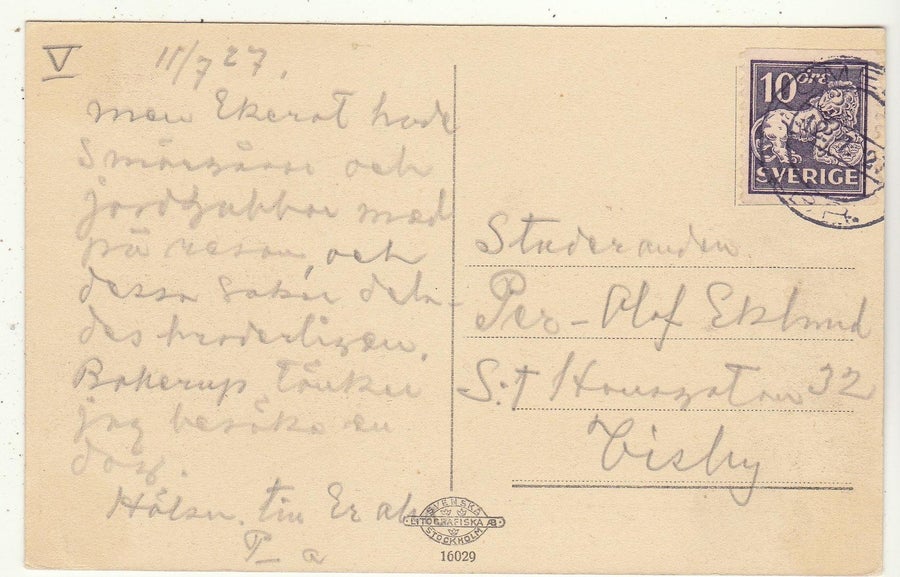 V
11/7 27.
men Ekerot hade
Smörgåsar och
jordgubbar med
på resan, och
dessa saker dela-
des broderligen.
Bokerup tänker
jag besöka en
dag.
Hälsn. till Er alla
P_a
10 öre
SVERIGE
Studeranden
Per-Olof Eklund
S:t Hansgatan 32
Visby
SVENSKA
LITOGRAFISKA AB
STOCKHOLM
16029